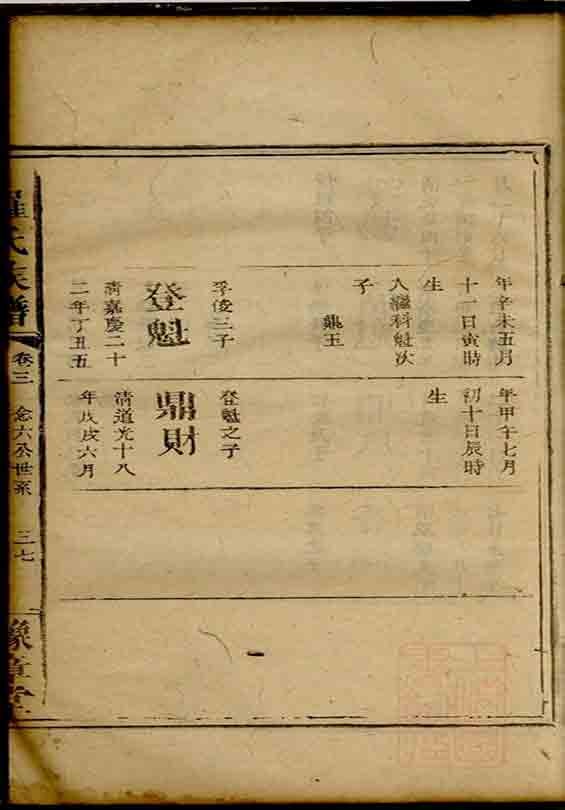 年辛未五月
十一日寅時
生
入繼科魁次
子
孚俊三子
登魁
清嘉慶二十
二年丁丑五
年甲午七月
初十日辰時
生
登魁之子
鼎財
清道光十八
年戊戌六月
羅氏族譜
卷三
念六公世系
三七
豫章堂